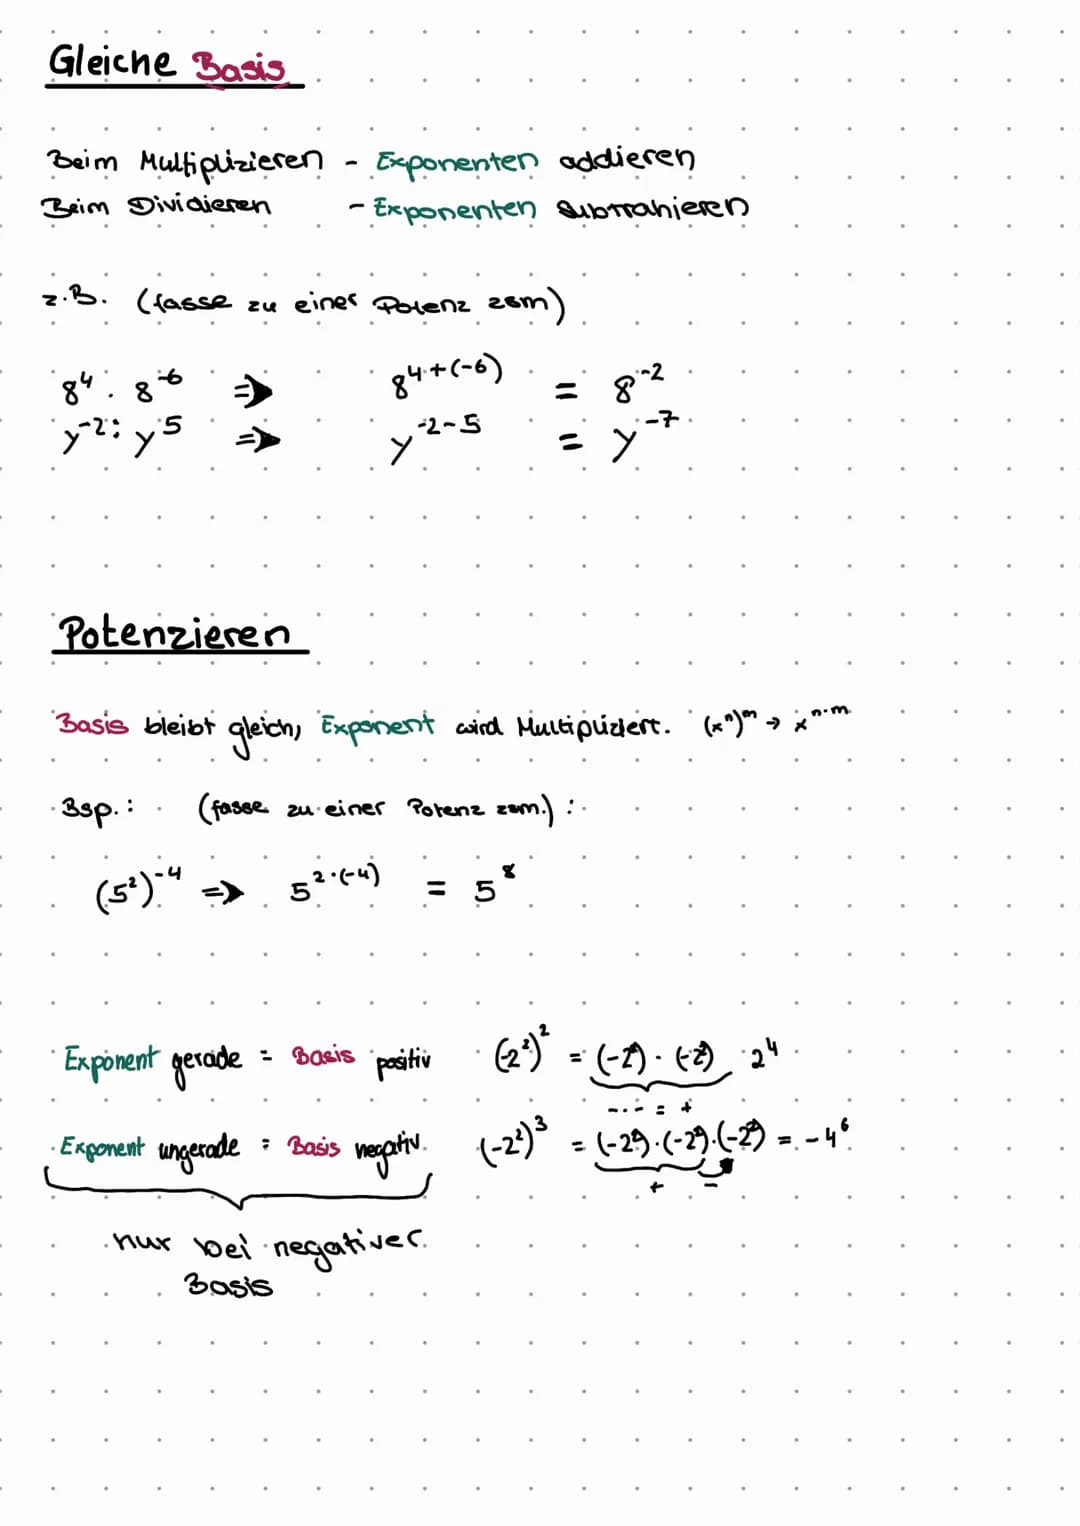 Gleiche Basis
Beim Multiplizieren - Exponenten addieren
Beim Dividieren - Exponenten subtrahieren
z.B. (fasse zu einer Potenz zsm)
8⁴ · 8⁻⁶ => 8⁴⁺⁽⁻⁶⁾ = 8⁻²
y⁻² : y⁵ => y⁻²⁻⁵ = y⁻⁷
Potenzieren
Basis bleibt gleich, Exponent wird Multipliziert. (xⁿ)ᵐ → xⁿ·ᵐ
Bsp.: (fasse zu einer Potenz zsm.):
(5²)⁻⁴ => 5²·⁽⁻⁴⁾ = 5⁸
Exponent gerade = Basis positiv (-2²)² = (-2²) · (-2²) 2⁴
- · - = +
Exponent ungerade = Basis negativ. (-2²)³ = (-2²)·(-2²)·(-2²) = -4⁶
+ -
nur bei negativer
Basis